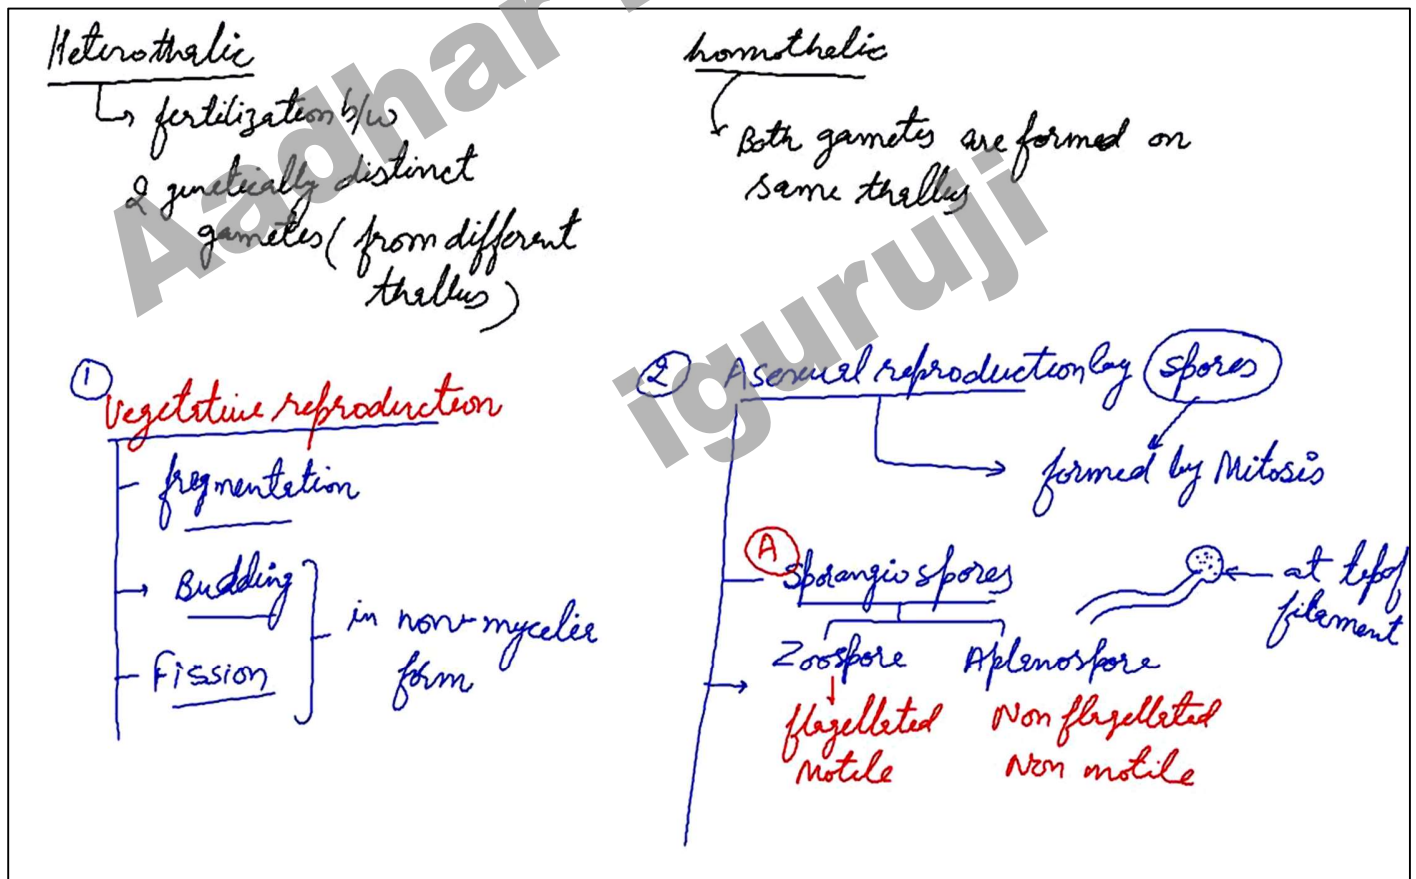 Heterothalic
fertilization b/w
2 genetically distinct
gametes ( from different
thallus )
homothalic
Both gametes are formed on
same thallus
1
Vegetative reproduction
fregmentation
Budding
Fission
in non-mycelia
form
2 Asexual reproduction by spores
formed by Mitosis
A
Sporangiospores
Zoospore Aplanospore
flagellated
Motile
Non flagellated
Non motile
at tip of
filament
Aadhar
iguruji